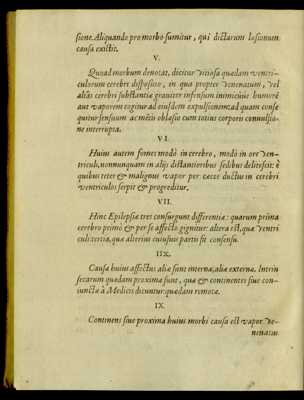 sione. Aliquando pro morbo sumitur, qui dictarum læsionum
causa existit.
V.
Quoad morbum denotat, dicitur vitiosa quædam ventri-
culorum cerebri dispositio, in qua propter venenatum, vel
aliâs cerebri substantiæ graviter infensum inimicúmq; humorē
aut vaporem cogitur ad eiusdem expulsionem: ad quam conse-
quitur sensuum ac mētis oblæsio cum totius corporis convulsio-
ne interrupta.
VI.
Huius autem fomes modò in cerebro, modò in ore ven-
triculi, nonnunquam in alijs distantioribus sedibus delitescit: è
quibus teter & malignus vapor per cæcos ductus in cerebri
ventriculos serpit & progreditur.
VII.
Hinc Epilepsiæ tres consurgunt differentiæ: quarum prima
cerebro primò & per se affecto gignitur: altera est, quæ ventri
culi: tertia, quæ alterius cuiusuis partis fit consensu.
IIX.
Causæ huius affectus aliæ sunt internæ, aliæ externæ. Intrin
secarum quædam proxima sunt, quæ & continentes siue con-
iunctæ à Medicis dicuntur: quædam remotæ.
IX.
Continens siue proxima huius morbi causa est vapor ve-
nenatus